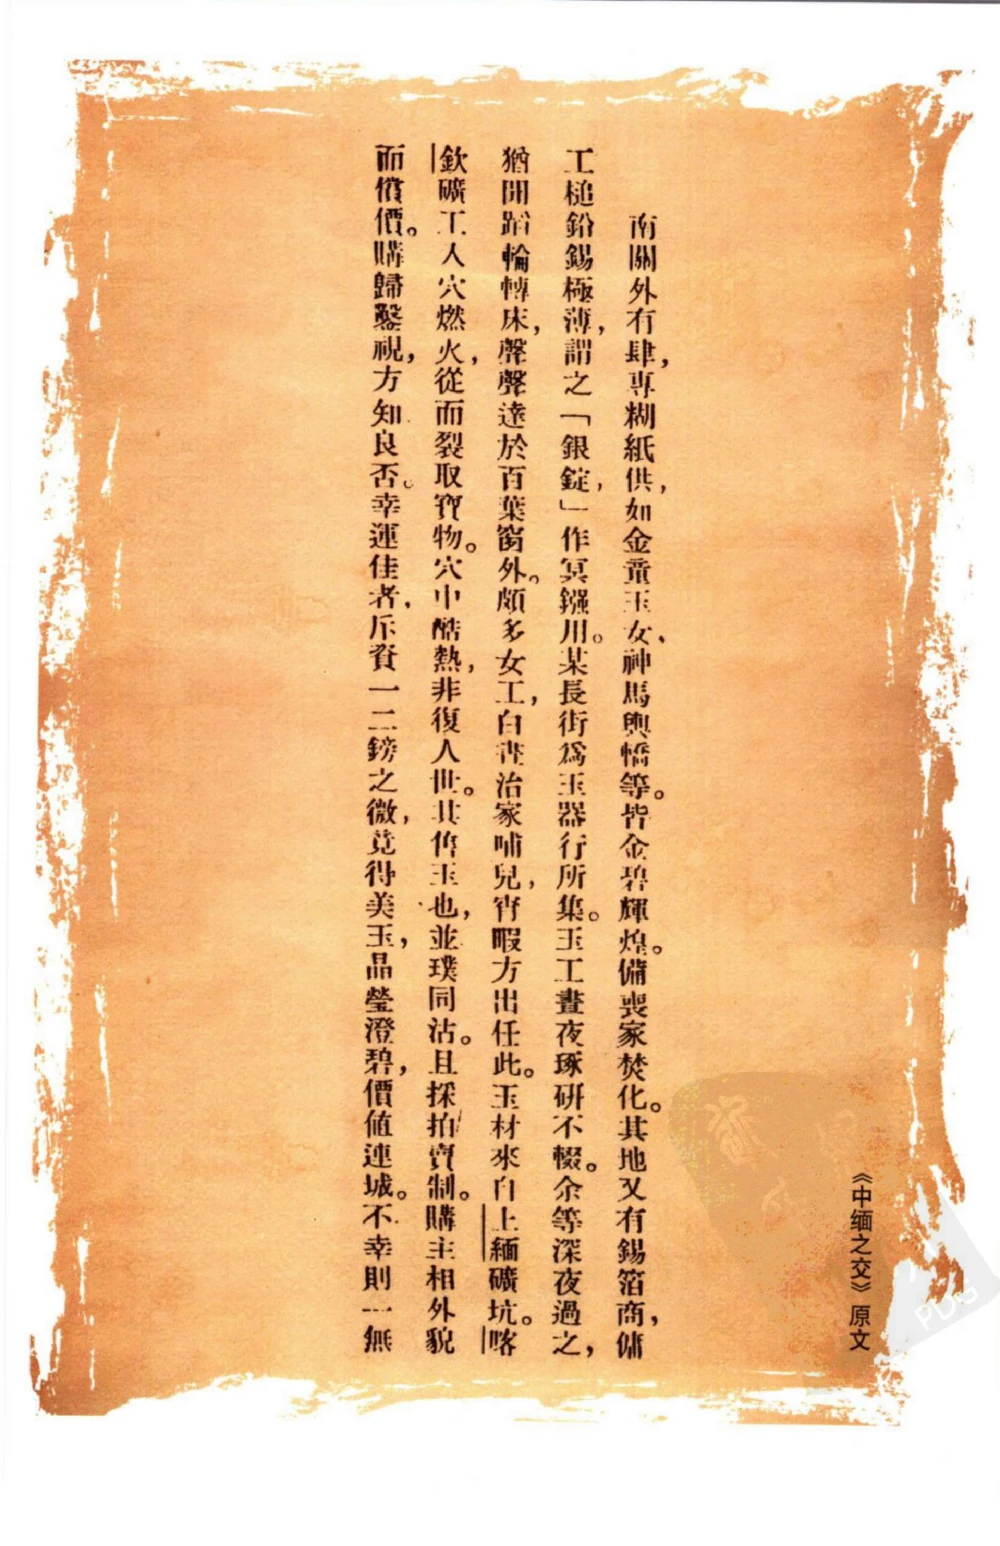 南關外有肆，專糊紙供，如金童玉女、神馬輿轎等。皆金碧輝煌。備喪家焚化。其地又有錫箔商，傭
工槌鉛錫極薄，謂之「銀錠，」作冥鏹用。某長街爲玉器行所集。玉工晝夜琢研不輟。余等深夜過之，
猶聞蹈輪轉床，聲聲達於百葉窗外。頗多女工，白晝治家哺兒，宵暇方出任此。玉材來自上緬礦坑。喀
欽礦工人穴燃火，從而裂取寶物。穴中酷熱，非復人世。其售玉也，並璞同沽。且採拍賣制。購主相外貌
而償價。購歸鑿視，方知良否。幸運佳者，斥資一二鎊之微，竟得美玉，晶瑩澄碧，價值連城。不幸則一無
《中缅之交》原文
PDG